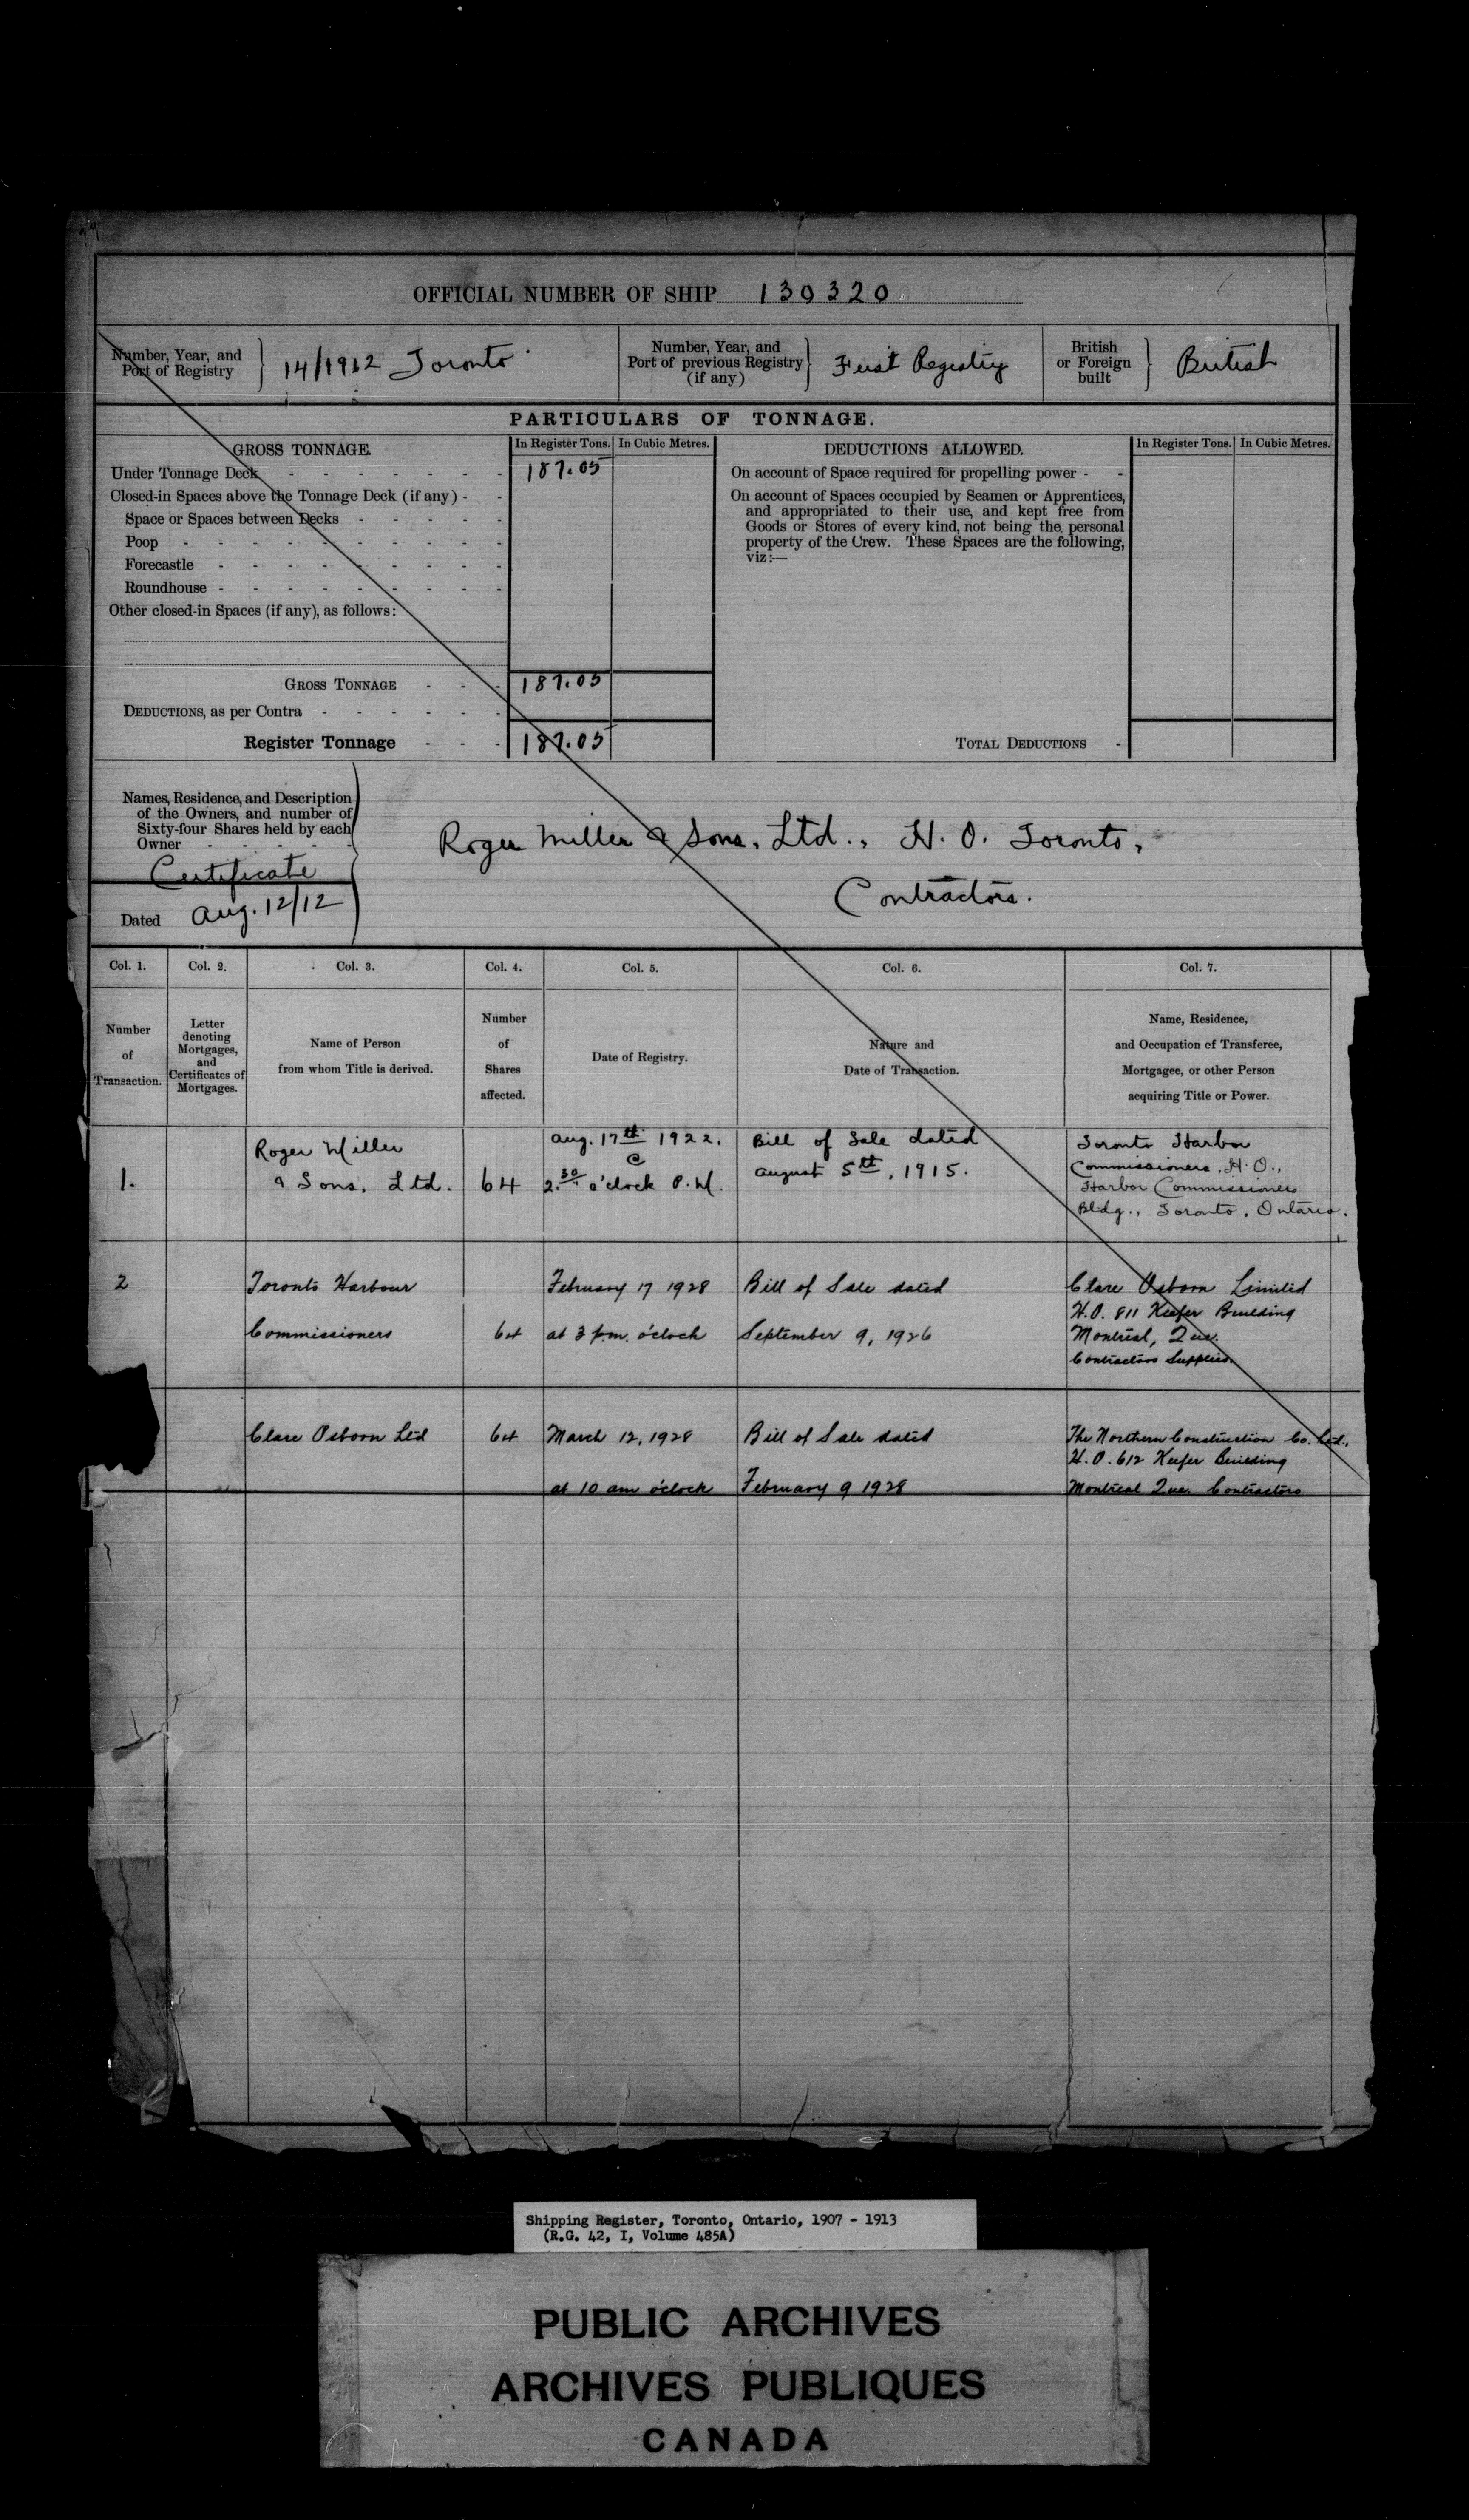 OFFICIAL NUMBER OF SHIP 130320
Number, Year, and
Port of Registry
14/1912 Toronto
Number, Year, and
Port of previous Registry
(if any)
First Registry
British
or Foreign
built
British
PARTICULARS OF TONNAGE.
GROSS TONNAGE.
In Register Tons.
In Cubic Metres.
Under Tonnage Deck - - - - - - - 187.05
Closed-in Spaces above the Tonnage Deck (if any) - -
Space or Spaces between Decks - - - - -
Poop - - - - - - - - - -
Forecastle - - - - - - - - -
Roundhouse - - - - - - - - -
Other closed-in Spaces (if any), as follows:
GROSS TONNAGE - - - 187.05
DEDUCTIONS, as per Contra - - - - - -
Register Tonnage - - - 187.05
DEDUCTIONS ALLOWED.
In Register Tons.
In Cubic Metres.
On account of Space required for propelling power - -
On account of Spaces occupied by Seamen or Apprentices,
and appropriated to their use, and kept free from
Goods or Stores of every kind, not being the personal
property of the Crew. These Spaces are the following,
viz:—
TOTAL DEDUCTIONS -
Names, Residence, and Description
of the Owners, and number of
Sixty-four Shares held by each
Owner - - - - -
Certificate
Dated Aug. 12/12
Roger Miller & Sons, Ltd., H. O. Toronto,
Contractors.
Col. 1.
Col. 2.
Col. 3.
Col. 4.
Col. 5.
Col. 6.
Col. 7.
Number
of
Transaction.
Letter
denoting
Mortgages,
and
Certificates of
Mortgages.
Name of Person
from whom Title is derived.
Number
of
Shares
affected.
Date of Registry.
Nature and
Date of Transaction.
Name, Residence,
and Occupation of Transferee,
Mortgagee, or other Person
acquiring Title or Power.
1.
Roger Miller
& Sons, Ltd.
64
Aug. 17th 1922.
@
2.30 o'clock P.M.
Bill of Sale dated
August 5th, 1915.
Toronto Harbor
Commissioners, H.O.,
Harbor Commissioners
Bldg., Toronto, Ontario.
2
Toronto Harbour
Commissioners
64
February 17 1928
at 3 p.m. o'clock
Bill of Sale dated
September 9, 1926
Clare Osborn Limited
H.O. 811 Keefer Building
Montreal, Que.
Contractors Supplies.
Clare Osborn Ltd
64
March 12, 1928
at 10 am o'clock
Bill of Sale dated
February 9 1928
The Northern Construction Co. Ltd.,
H.O. 612 Keefer Building
Montreal Que. Contractors
Shipping Register, Toronto, Ontario, 1907 - 1913
(R.G. 42, I, Volume 485A)
PUBLIC ARCHIVES
ARCHIVES PUBLIQUES
CANADA